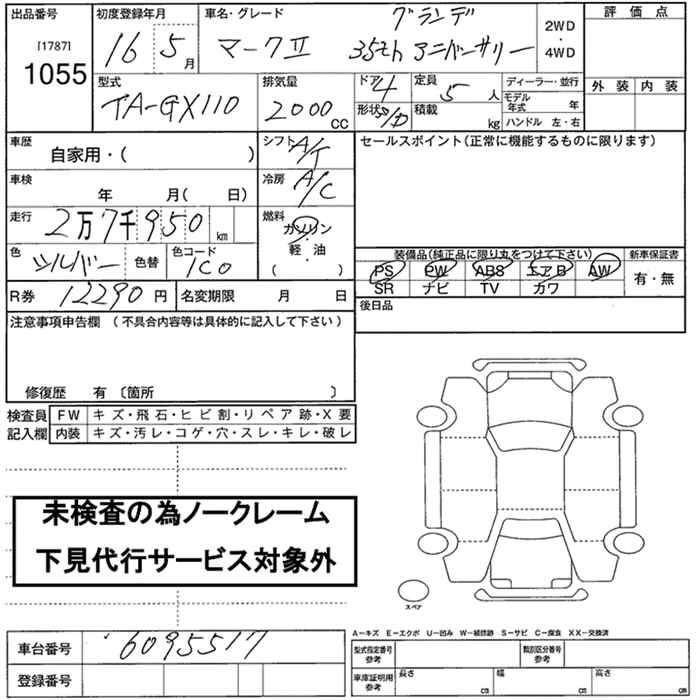 出品番号 初度登録年月 車名・グレード グランデ 評 価 点
[1787] 1055 16 5 月 マークⅡ 35th アニバーサリー 2WD ・ 4WD
型式 排気量 ドア 4 定員 5 人 ディーラー・並行 外 装 内 装
TA-GX110 2000 CC 形状 S/D 積載 kg モデル年式 年
ハンドル 左・右
車歴 自家用・( ) シフト A/T セールスポイント(正常に機能するものに限ります)
車検 年 月( 日) 冷房 A/C
走行 2万7千950 km 燃料 ガソリン・軽・油 ( )
色 シルバー 色替 色コード 1C0 装備品(純正品に限り丸をつけて下さい) 新車保証書
PS PW ABS エアB AW 有・無
R券 12290 円 名変期限 月 日 SR ナビ TV カワ
注意事項申告欄 (不具合内容等は具体的に記入して下さい) 後日品
修復歴 有 〔箇所 〕
検査員 FW キズ・飛石・ヒビ割・リペア跡・X要
記入欄 内装 キズ・汚レ・コゲ・穴・スレ・キレ・破レ
未検査の為ノークレーム
下見代行サービス対象外
スペア
A-キズ E-エクボ U-凹み W-補修跡 S-サビ C-腐食 XX-交換済
車台番号 6095517 型式指定番号 参考 類別区分番号 参考
登録番号 車庫証明用 参考 長さ cm 幅 cm 高さ cm